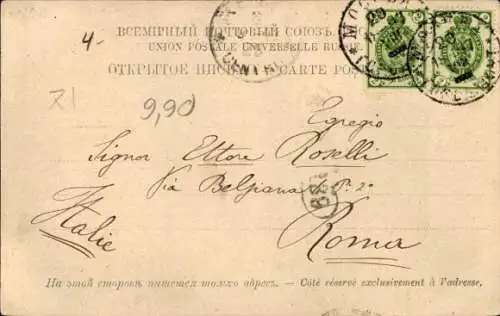 ВСЕМІРНЫЙ ПОЧТОВЫЙ СОЮЗЪ.
UNION POSTALE UNIVERSELLE RUSSIE
ОТКРЫТОЕ CARTE POSTALE
4-
МОСКВА
71
9,90
Egregio
Signor Ettore Roselli
Via Belsiana
Roma
Italie
На этой сторонѣ пишется только адресъ. — Côté réservé exclusivement à l'adresse.